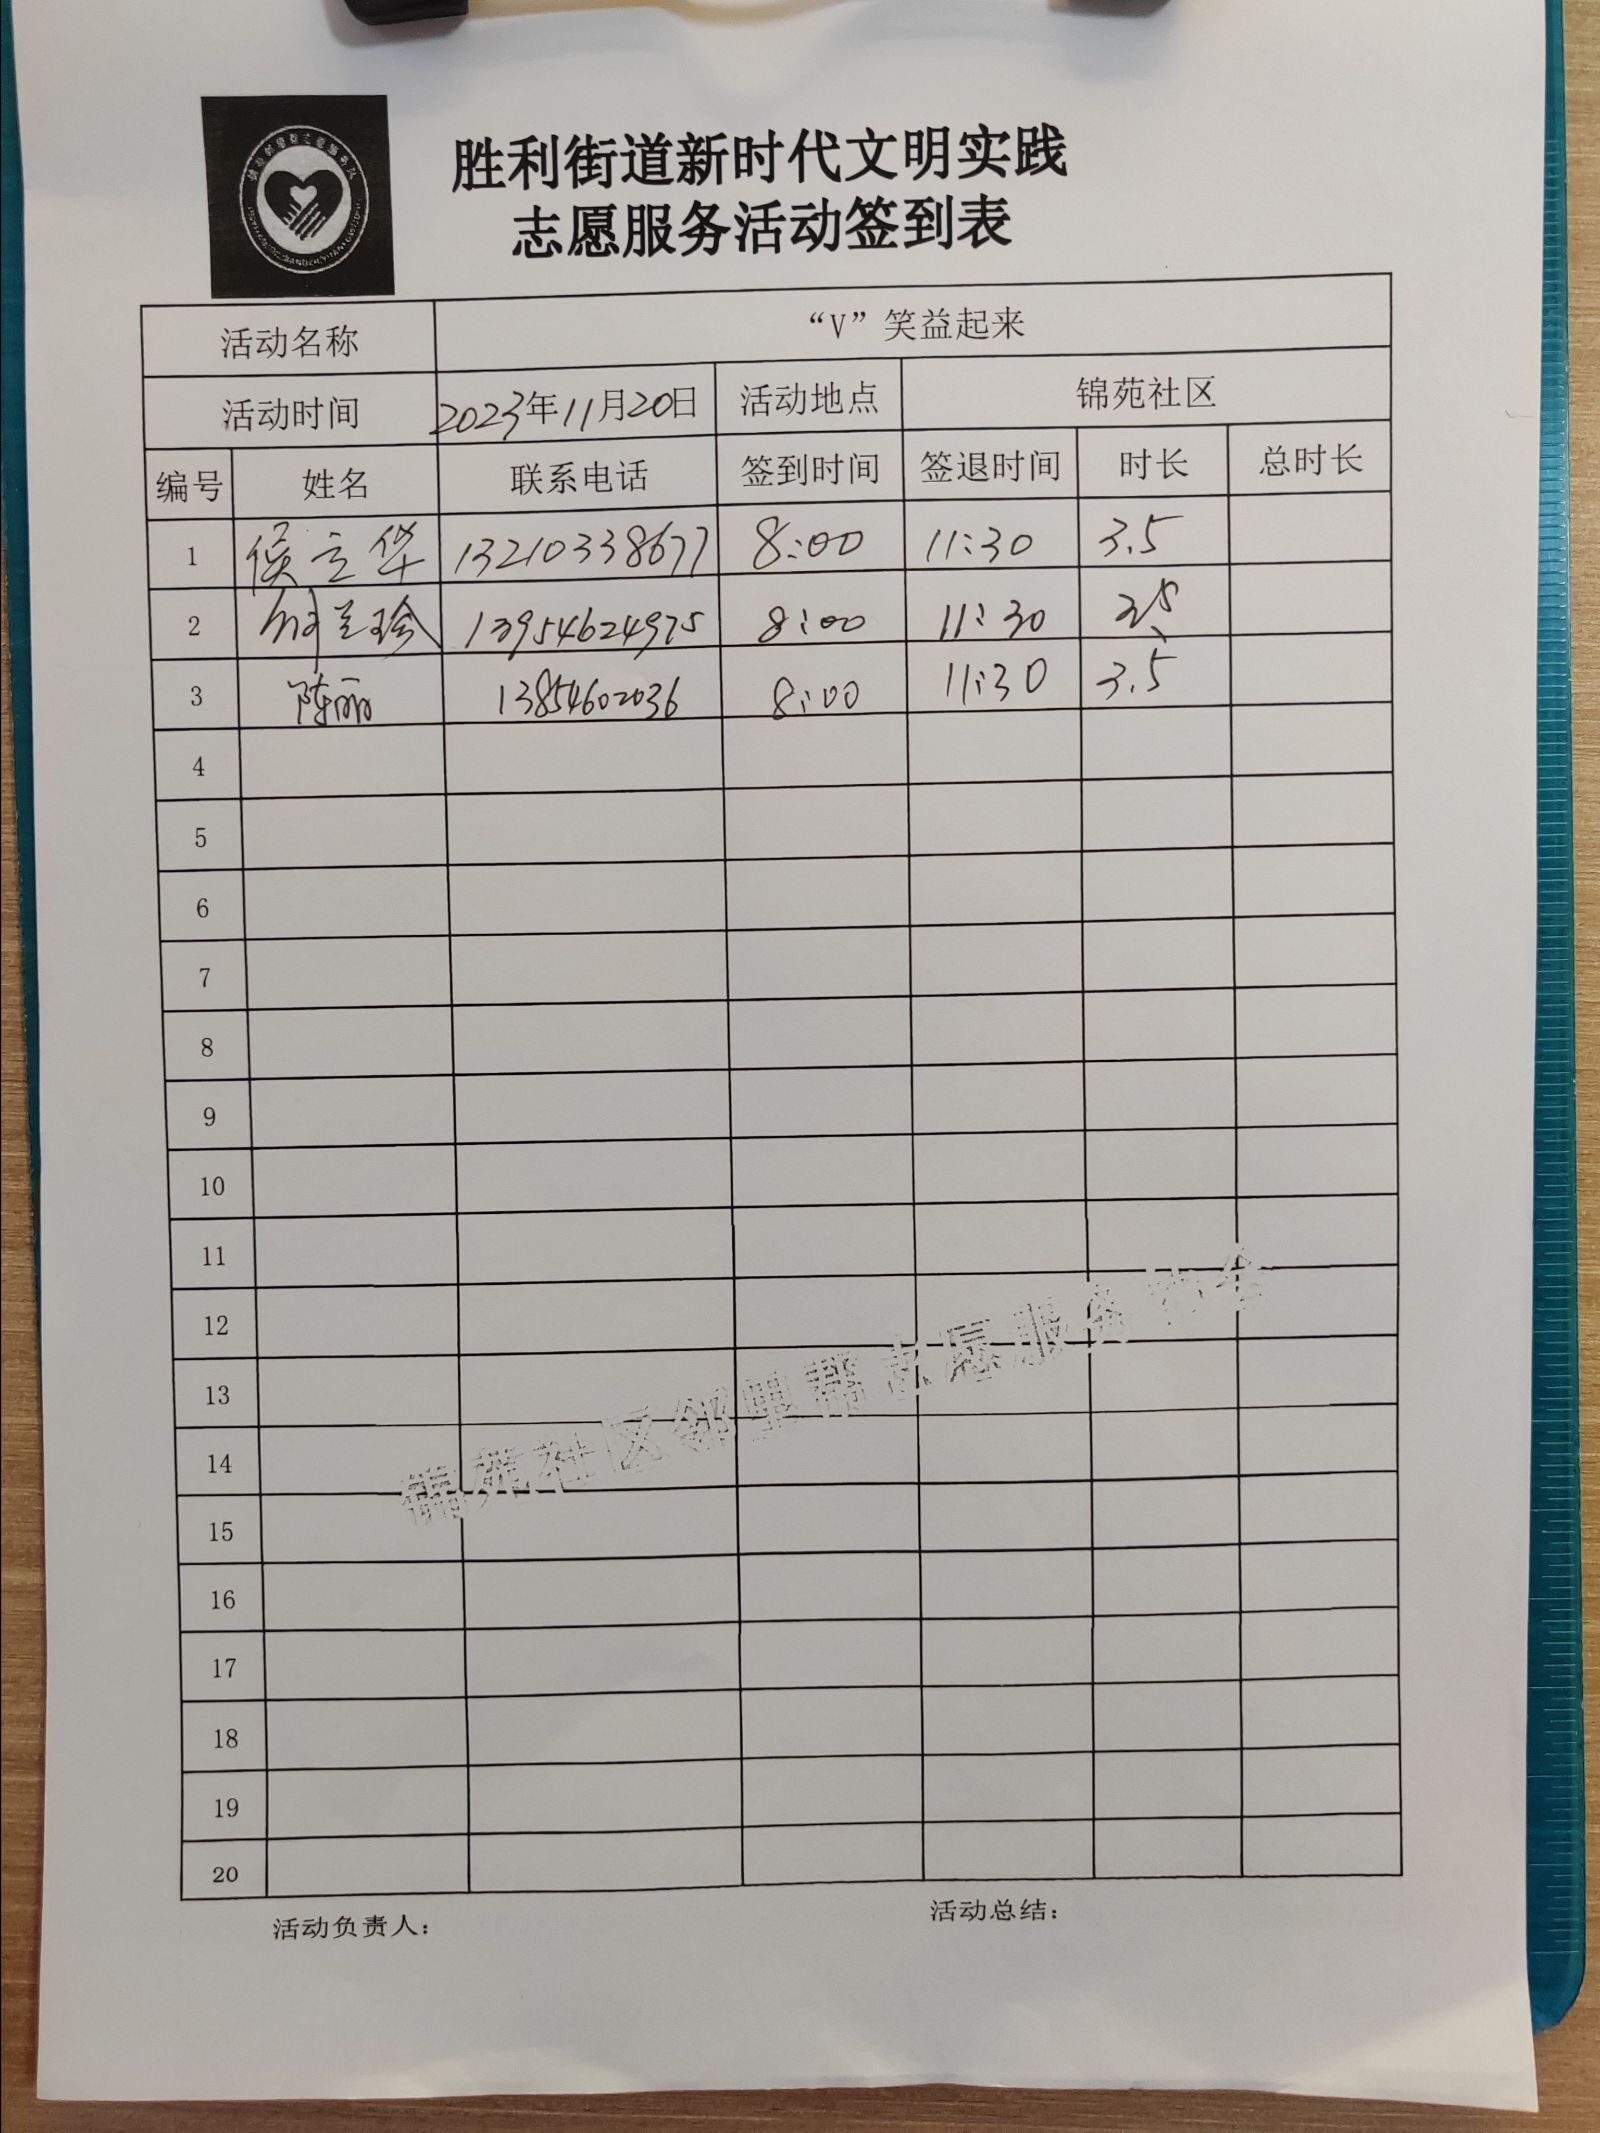 胜利街道新时代文明实践
志愿服务活动签到表
活动名称 “V”笑益起来
活动时间 2023年11月20日 活动地点 锦苑社区
编号 姓名 联系电话 签到时间 签退时间 时长 总时长
1 侯立华 13210338677 8:00 11:30 3.5
2 兰珍 13954624975 8:00 11:30 3.5
3 陈丽 13854602036 8:00 11:30 3.5
4
5
6
7
8
9
10
11
12
13
14
15
16
17
18
19
20
锦苑社区邻里帮志愿服务协会
活动负责人： 活动总结：